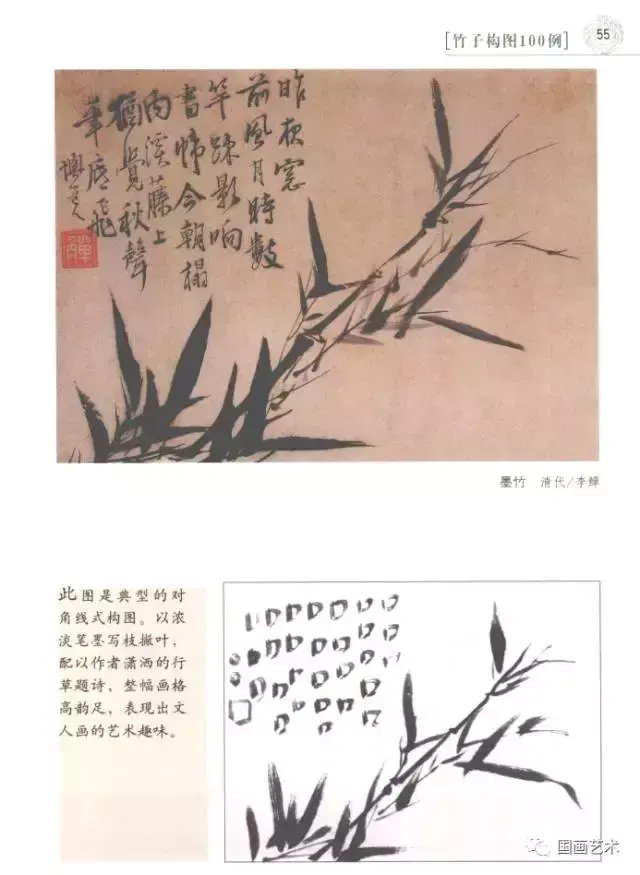 [竹子构图100例]
55
昨夜窓
前風月時數
竿踈影响
書幃今朝搨
向溪藤上
猶覺秋聲
筆底飛
墨竹 清代/李鱓
此图是典型的对
角线式构图。以浓
淡笔墨写枝撇叶，
配以作者潇洒的行
草题诗，整幅画格
高韵足，表现出文
人画的艺术趣味。
国画艺术